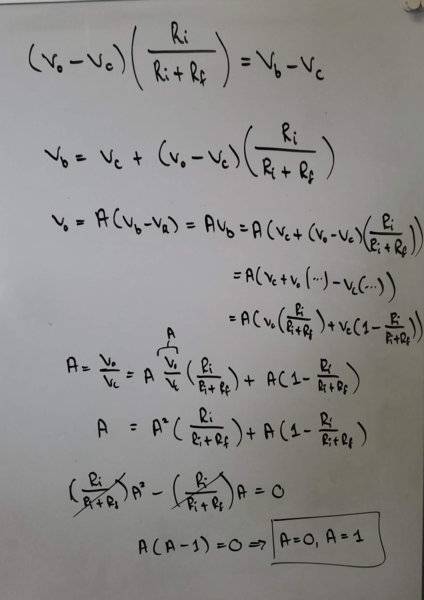 (V₀ − V_c)(Ri / (Ri + R_f)) = V_b − V_c
V_b = V_c + (V₀ − V_c)(Ri / (Ri + R_f))
V₀ = A(V_b − V_a) = AV_b = A(V_c + (V₀ − V_c)(Ri / (Ri + R_f))
= A(V_c + V₀(...) − V_c(...))
= A(V₀(Ri / (Ri + R_f)) + V_c(1 − Ri / (Ri + R_f))
A
A = V₀ / V_c = A V₀ / V_c (Ri / (Ri + R_f)) + A(1 − Ri / (Ri + R_f))
A = A²(Ri / (Ri + R_f)) + A(1 − Ri / (Ri + R_f))
(Ri / (Ri + R_f))A² − (Ri / (Ri + R_f))A = 0
A(A−1) = 0 ⇒ A=0, A=1